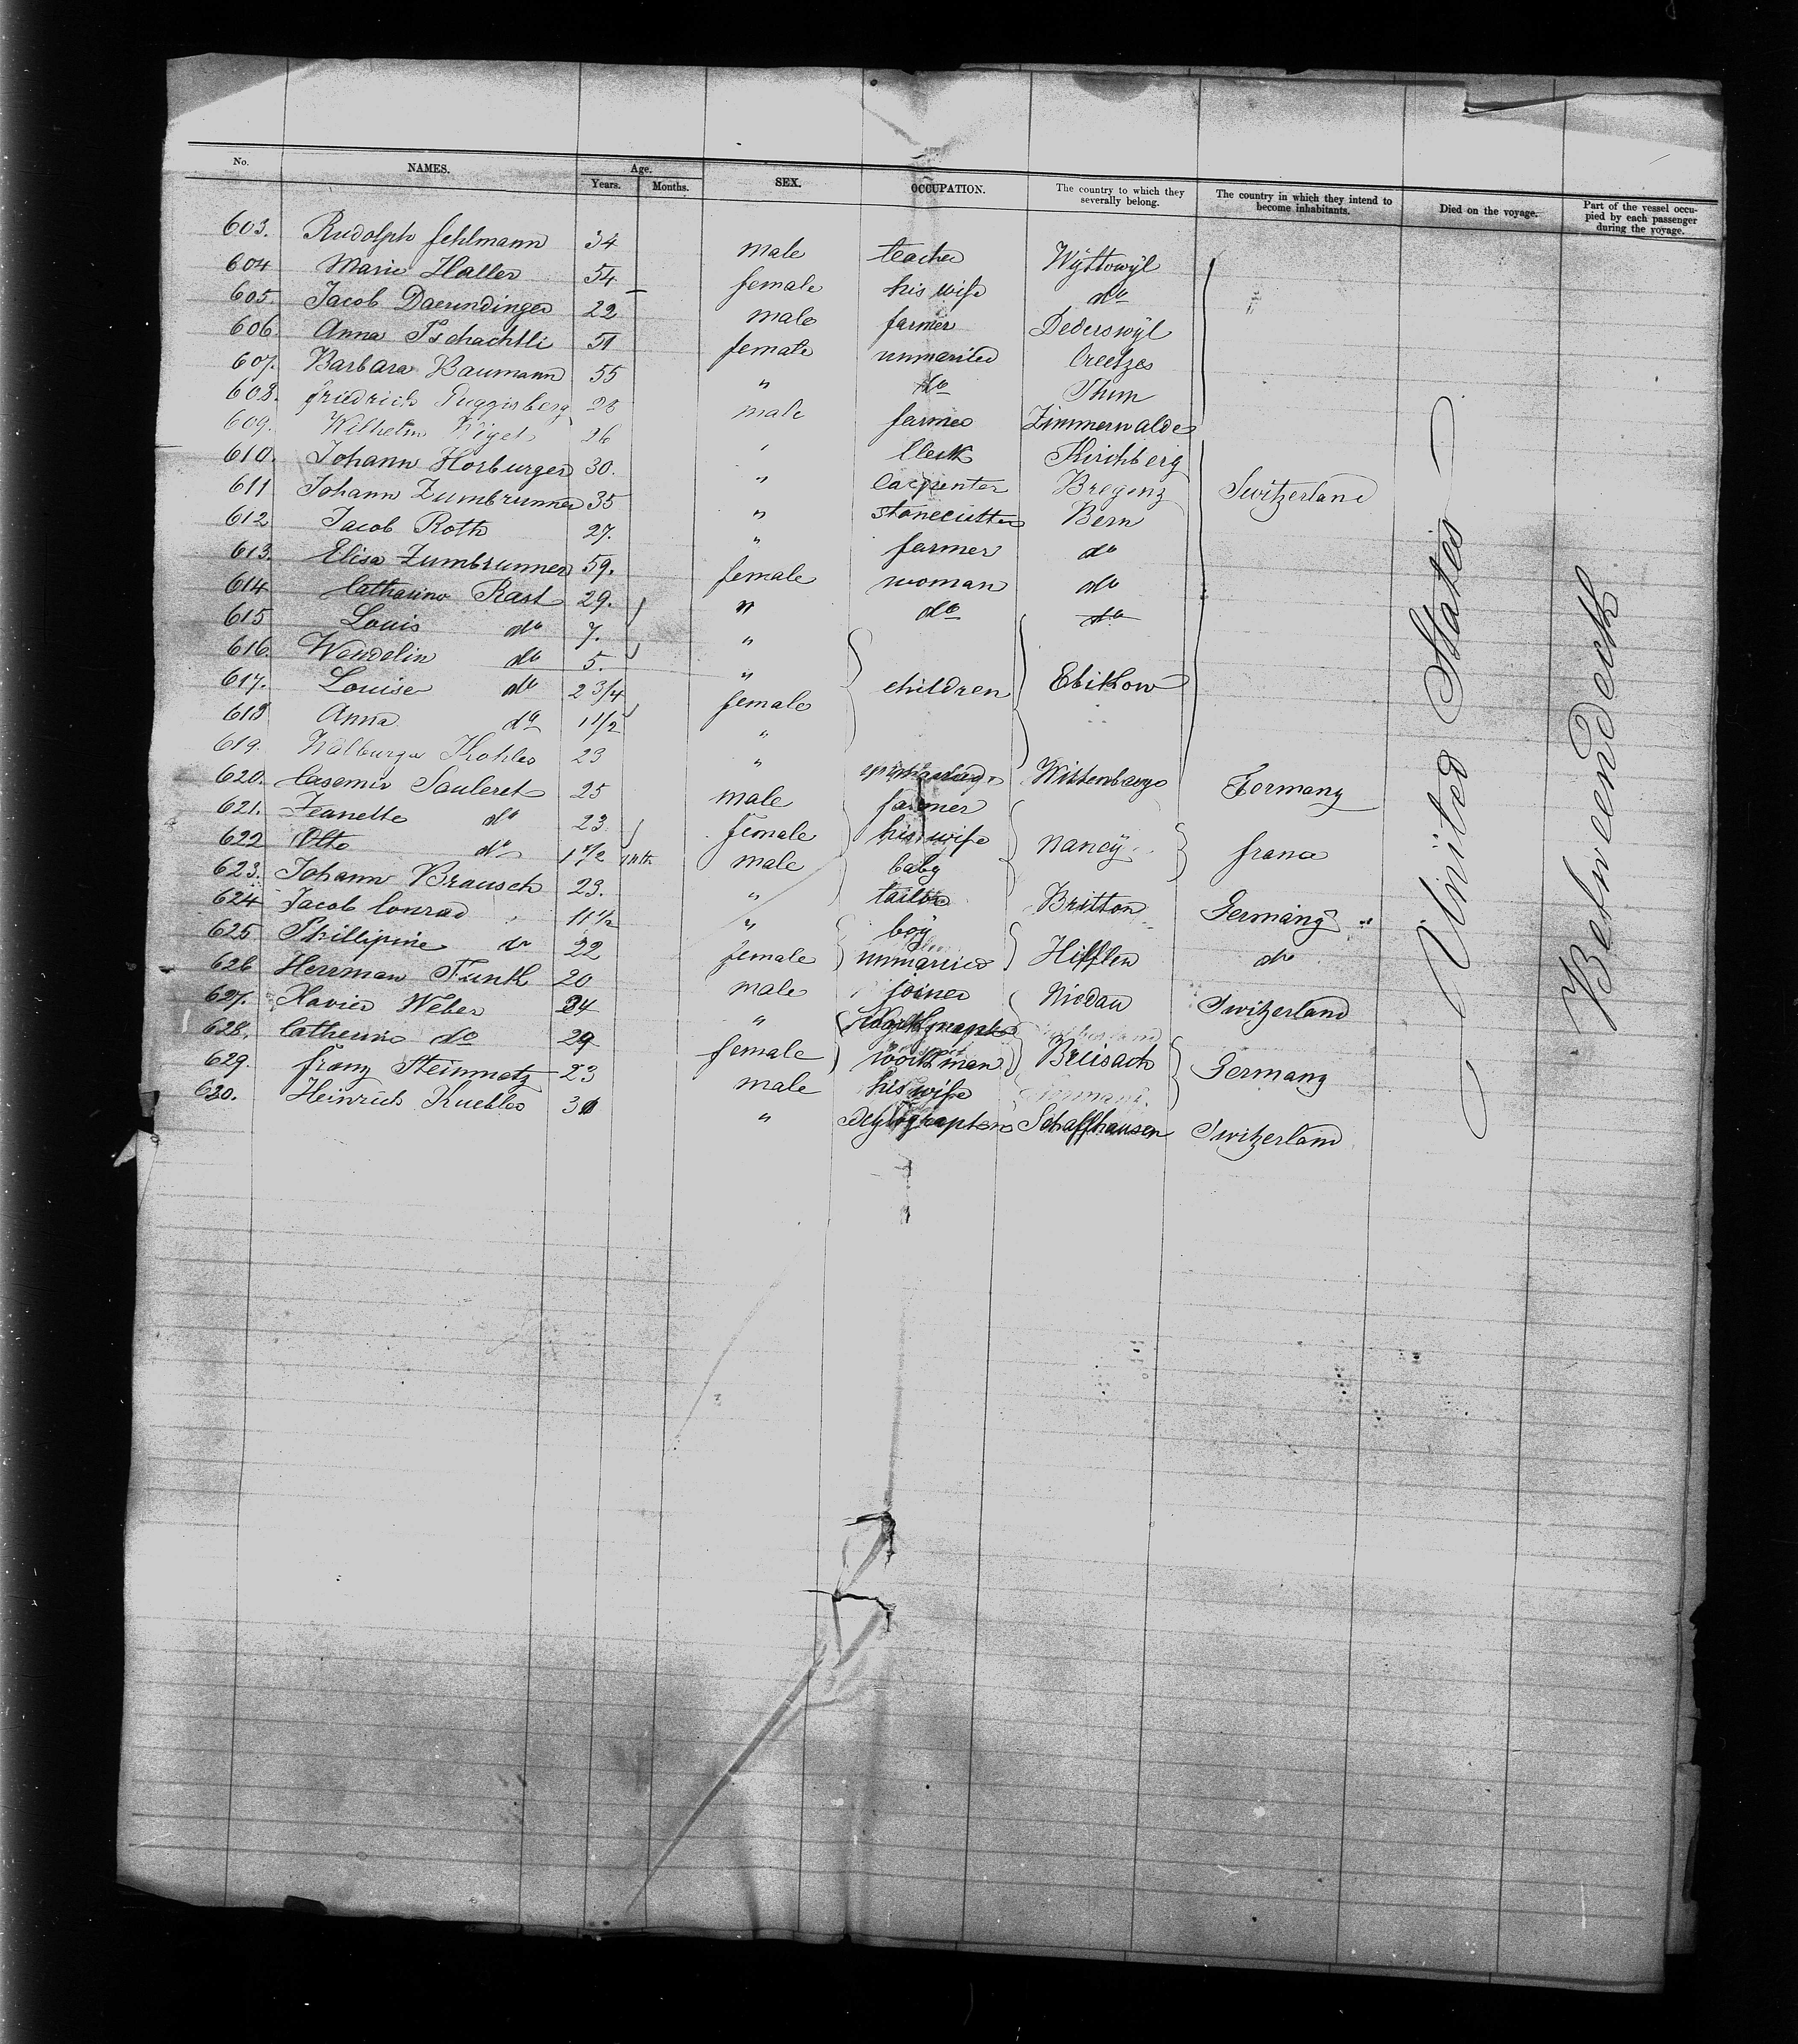 No. NAMES. Age. Years. Months. SEX. OCCUPATION. The country to which they severally belong. The country in which they intend to become inhabitants. Died on the voyage. Part of the vessel occupied by each passenger during the voyage.
603. Rudolph Fehlmann 34 male teacher Wÿttowÿl
604 Marie Haller 54 female his wife do
605. Jacob Daerendinger 22 male farmer Dederswÿl
606. Anna Tschachtli 51 female unmarried
607. Barbara Baumann 55 " do Thun
608. friedrich Guggisberg 28 male farmer Zimmerwalde
609. Wilhelm Wiget 26 " Clerk Kirchberg
610. Johann Horburger 30. " Carpenter Bregenz Switzerland
611 Johann Zumbrunner 35 " stonecutter Bern
612 Jacob Roth 27. " farmer do
613. Elisa Zumbrunner 59. female woman do
614 Catharina Rast 29. " do do
615 Louis do 7. "
616. Wendelin do 5. " children Ebikow
617. Louise do 2 3/4 female
618 Anna do 1 1/2 "
619. Walburga Kohler 23 " Wittenberge Germany
620. Casemir Sauleret 25 male farmer
621. Jeanette do 23. female his wife Nancÿ france
622 Otto do 1 1/2 mth male baby
623. Johann Brausch 23. " tailor Britton Germany
624 Jacob Conrad 11 1/2 " boÿ
625 Phillipine do 22 female unmarried do
626 Herrman Funk 20 male joiner Nidau Switzerland
627. Xavier Weber 24 "
628. Catherine do 29 female workman Breisach Germany
629. franz Steinmetz 23 male his wife
630. Heinrich Kuebler 31 " Schaffhausen Switzerland
United States
Betweendeck